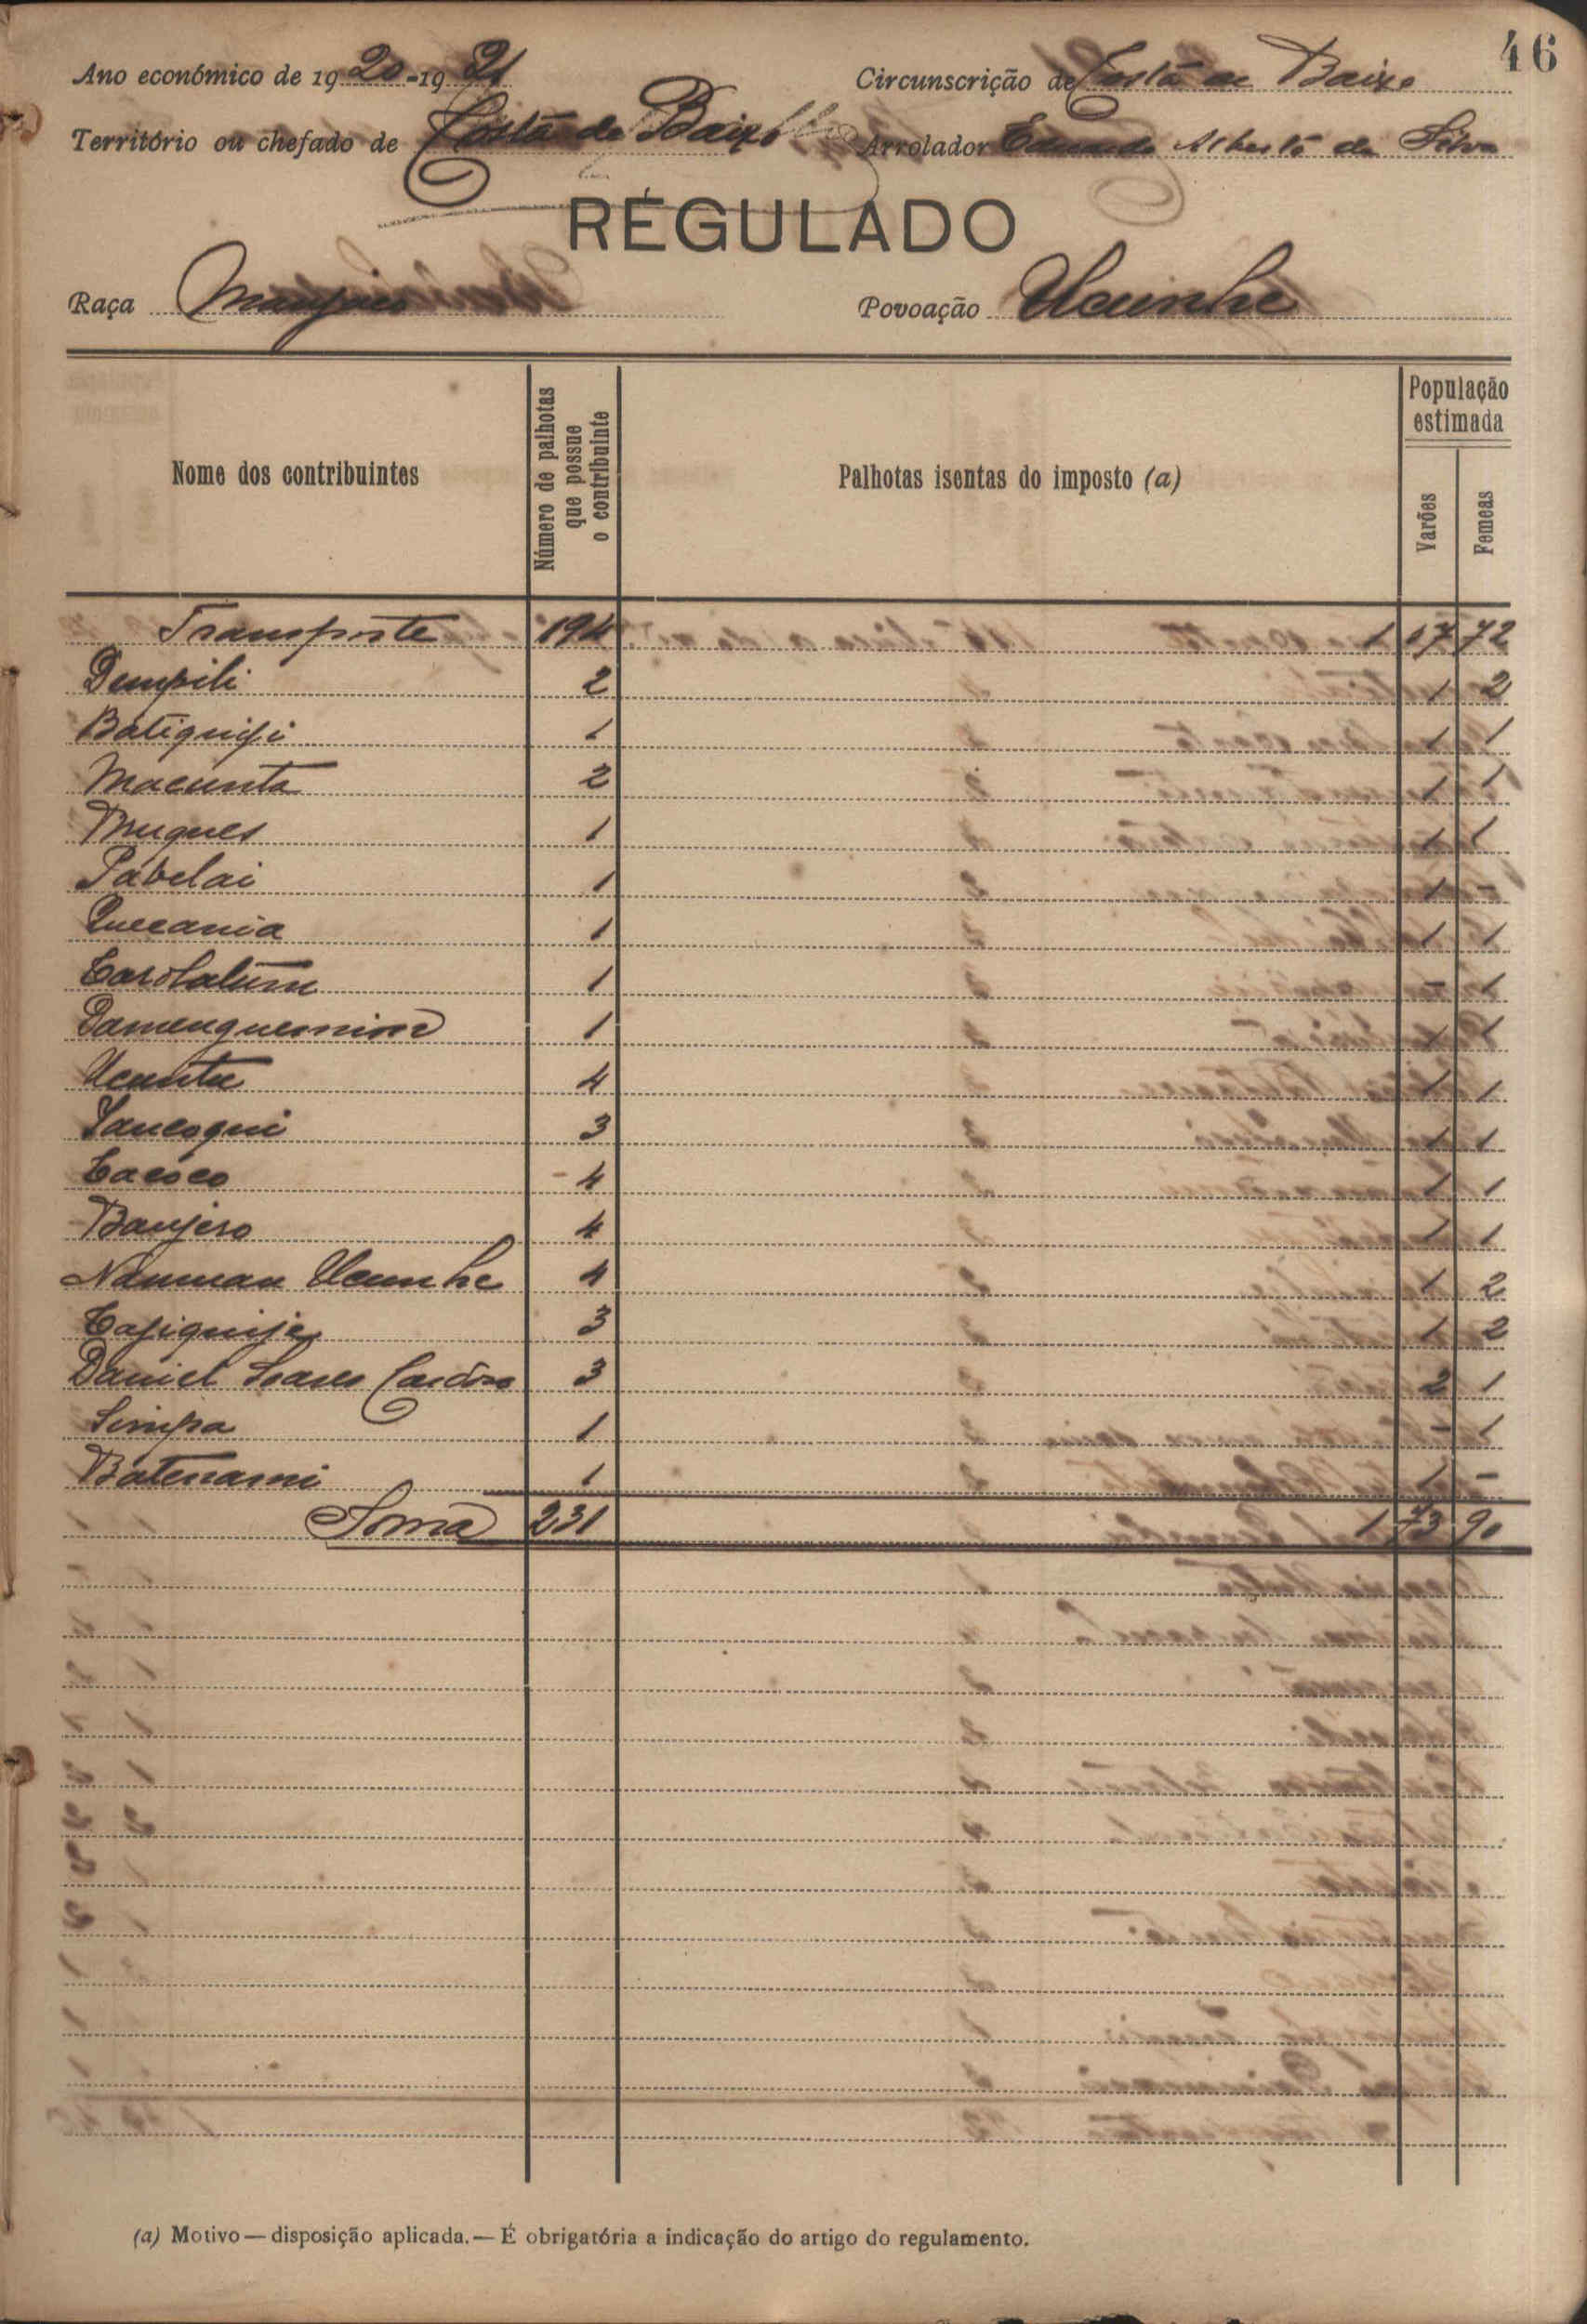 46
Ano económico de 1920-1921 Circunscrição de Costa de Baixo
Território ou chefado de Costa de Baixo Arrolador Eduardo Alberto da Silva
RÉGULADO
Raça Manjaco Povoação Ucunhe
Nome dos contribuintes Número de palhotas que possue o contribuinte Palhotas isentas do imposto (a) População estimada Varões Femeas
Transporte 194 1 57 72
Dempili 2 1 2
Batiquiji 1 1 1
Macunta 2 1 1
1 1 1
Pabelai 1 1 -
Quecania 1 1 1
1 - 1
1 1 1
Ucunta 4 1 1
3 1 1
Cacoco 4 1 1
Banjero 4 1 1
Nauman Ucunhe 4 1 2
Cajiquije 3 1 2
Daniel Soares Cardoso 3 2 1
Simpa 1 - 1
Batenami 1 1 -
Soma 231 1 73 90
(a) Motivo — disposição aplicada. — É obrigatória a indicação do artigo do regulamento.